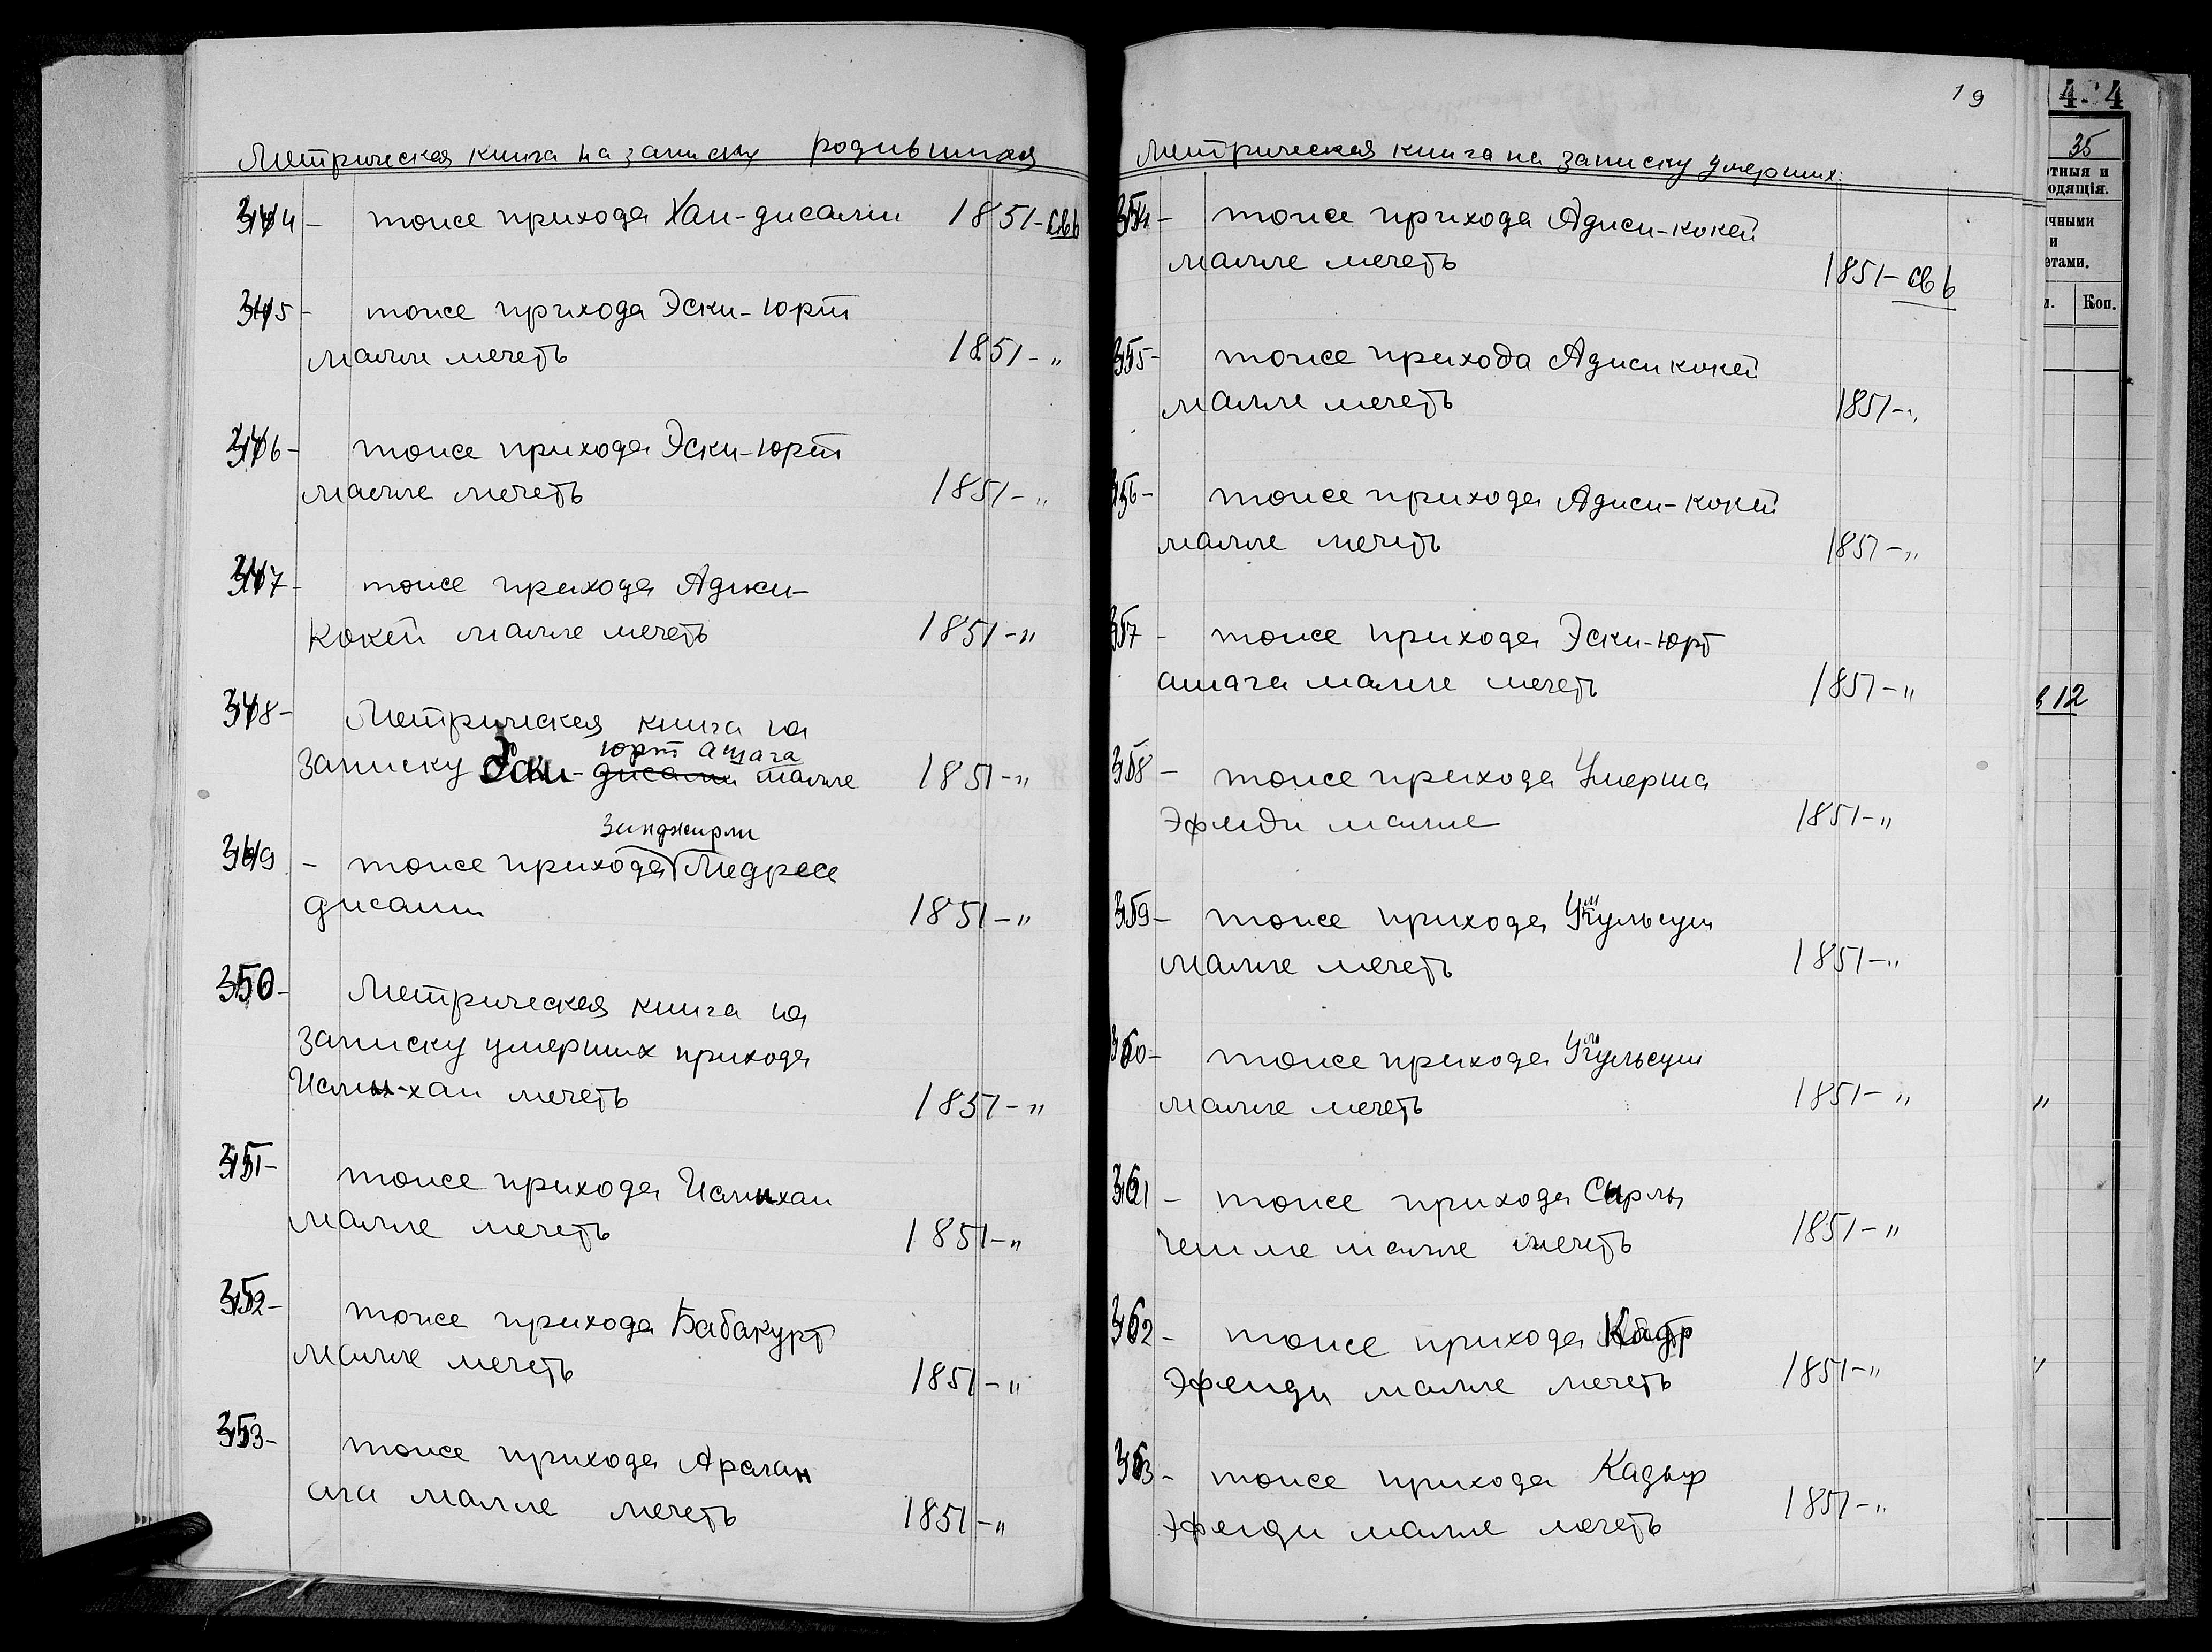 Метрическая книга на записку родившихся
344 - тоже прихода Хан-джами 1851-св6
345 - тоже прихода Эски-юрт
малле мечеть 1851-"
346 - тоже прихода Эски-юрт
малле мечеть 1851-"
347 - тоже прихода Аджи-
кокей малле мечеть 1851-"
348 - Метрическая книга на
юрт ашага
записку Эски-джами малле 1851-"
Зинджирли
349 - тоже прихода Медресе
джами 1851-"
350 - Метрическая книга на
записку умерших прихода
хан мечеть 1851-"
351 - тоже прихода
малле мечеть 1851-"
352 - тоже прихода Бабакурт
малле мечеть 1851-"
353 - тоже прихода Арслан
ага малле мечеть 1851-"
19
Метрическая книга на записку умерших
354 - тоже прихода Аджи-кокей
малле мечеть 1851-св6
355 - тоже прихода Аджи кокей
малле мечеть 1851-"
356 - тоже прихода Аджи-кокей
малле мечеть 1851-"
357 - тоже прихода Эски-юрт
ашага малле мечеть 1851-"
358 - тоже прихода Умерша
Эфенди малле 1851-"
359 - тоже прихода Умкульсум
малле мечеть 1851-"
360 - тоже прихода Умгульсум
малле мечеть 1851-"
361 - тоже прихода Сырлы
чешме малле мечеть 1851-"
362 - тоже прихода Кадыр
Эфенди малле мечеть 1851-"
363 - тоже прихода Кадыр
Эфенди малле мечеть 1851-"
4. 4
35
отныя и
одящія.
ичными
и
этами.
Коп.
12
"
"